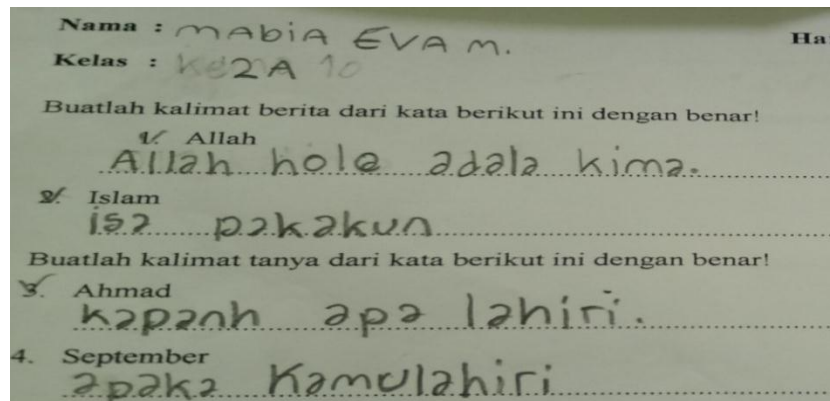 Nama : MAbiA EVA M.
Ha
Kelas : 2A
Buatlah kalimat berita dari kata berikut ini dengan benar!
1. Allah
Allah hole adala kima.
2. Islam
isa pakakun
Buatlah kalimat tanya dari kata berikut ini dengan benar!
3. Ahmad
kapanh apa lahiri.
4. September
apaka Kamulahiri